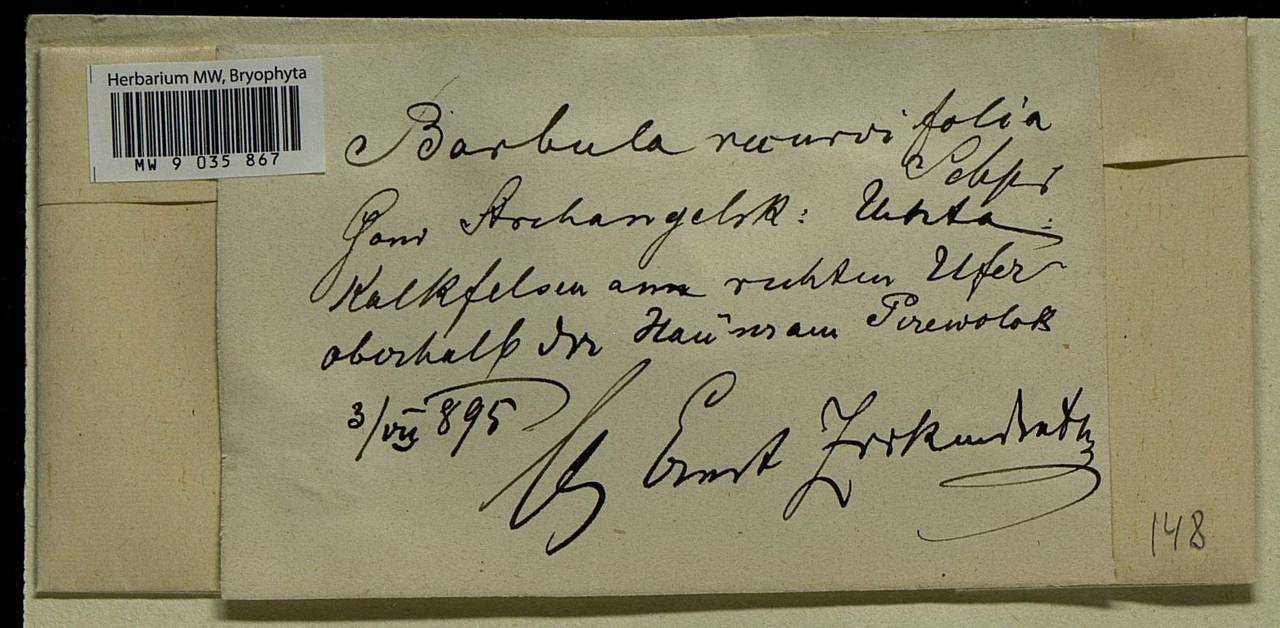 Herbarium MW, Bryophyta
MW 9 035 867
Barbula recurvifolia
Schpr
Gouv Archangelsk: Uchta:
Kalkfelsen am rechten Ufer
oberhalb der Häuser am Perewolok
3/VII 895
Ernst
148